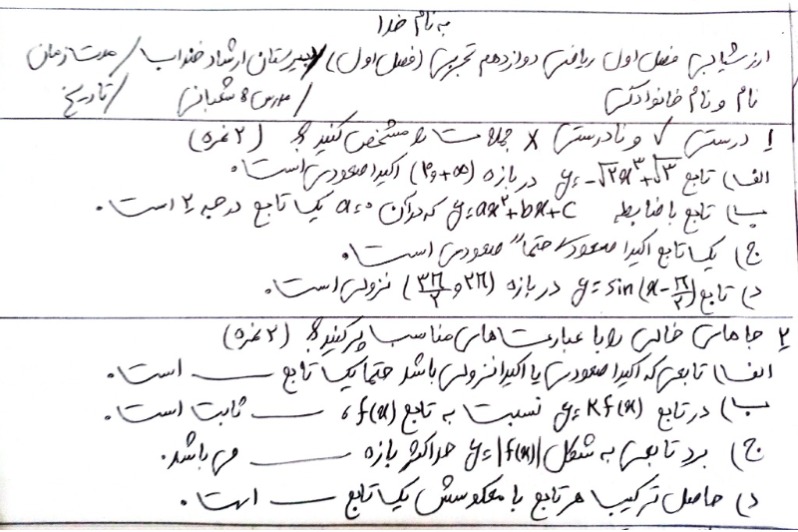 به نام خدا
ارزشیابی فصل اول ریاضی دوازدهم تجربی (فصل اول) / دبیرستان ارشاد خنداب / مدت زمان
نام و نام خانوادگی / مدرس: شعبانی / تاریخ
۱) درستی √ و نادرستی × جملات را مشخص کنید؟ (۲ نمره)
الف) تابع y = -√۲x³ + √۳ در بازه (۳ و +∞) اکیدا صعودی است.
ب) تابع با ضابطه y = ax² + bx + c که در آن a = 0 یک تابع درجه ۲ است.
ج) یک تابع اکیدا صعودی حتماً صعودی است.
د) تابع y = sin(x - π/۲) در بازه (۳π/۲ و ۲π) نزولی است.
۲) جاهای خالی را با عبارت های مناسب پر کنید؟ (۲ نمره)
الف) تابعی که اکیدا صعودی یا اکیدا نزولی باشد حتما یک تابع ـــــ است.
ب) در تابع y = kf(x) نسبت به تابع f(x)، ـــــ ثابت است.
ج) برد تابعی به شکل y = |f(x)| حداکثر بازه ـــــ می باشد.
د) حاصل ترکیب هر تابع با معکوسش یک تابع ـــــ است.